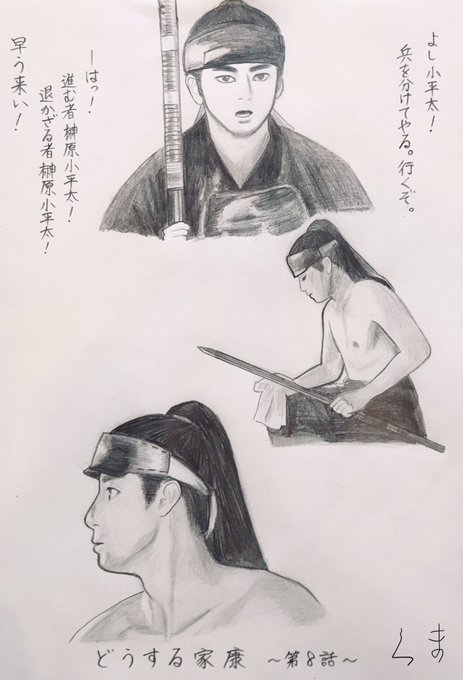 よし小平太!
兵を分けてやる。行くぞ。
ーはっ!
進む者 榊原小平太!
退かざる者 榊原小平太!
早う来い!
どうする家康 〜第8話〜
くま